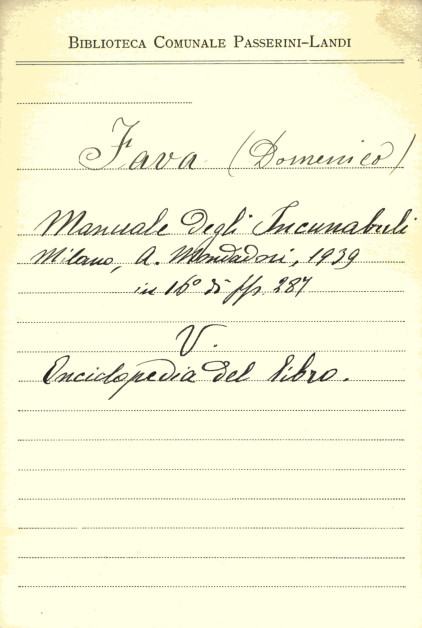 BIBLIOTECA COMUNALE PASSERINI-LANDI
Fava (Domenico)
Manuale degli Incunabuli
Milano, A. Mondadori, 1939
in 16° di pp. 287
V.
Enciclopedia del libro.